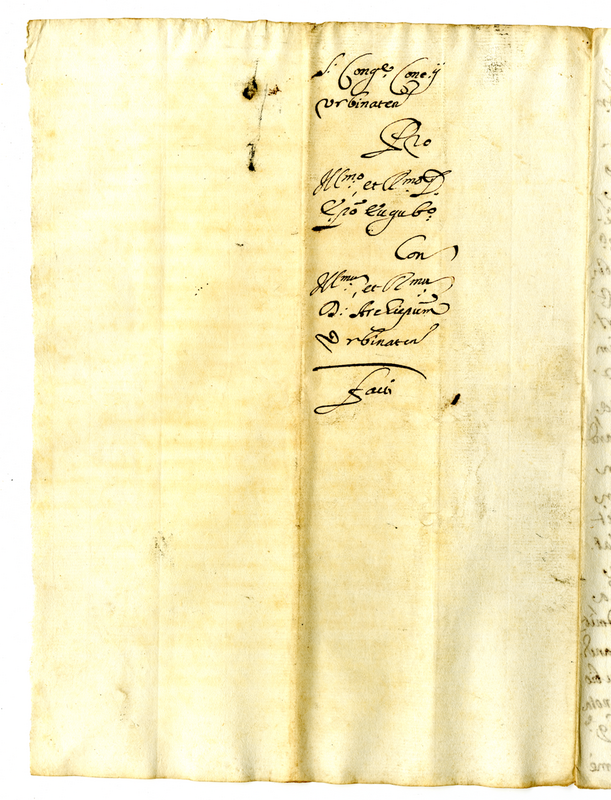 S. Cong.e Conc.ij
Vrbinaten
Pro
Ill.mo et R.mo D.
Ep̃o Eugub.o
Con
Ill.mu et R.mu
D. Archiepum
Vrbinaten
Facti